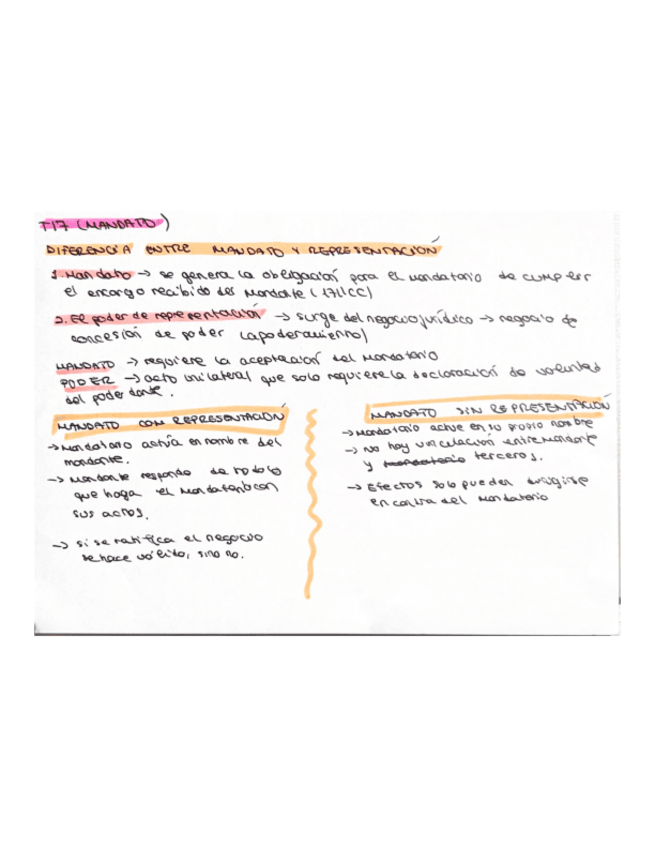 T17 (MANDATO)
DIFERENCIA ENTRE MANDATO Y REPRESENTACIÓN
1. Mandato → se genera la obligación para el mandatario de cumplir
el encargo recibido del Mandante (1711CC)
2. El poder de representación → surge del negocio jurídico → negocio de
concesión de poder (apoderamiento)
MANDATO → requiere la aceptación del Mandatario
PODER → acto unilateral que solo requiere la declaración de voluntad
del poderdante.
MANDATO CON REPRESENTACIÓN
→ Mandatario actúa en nombre del
mandante.
→ Mandante responde de todo lo
que haga el Mandatario con
sus actos.
→ si se ratifica el negocio
se hace válido, sino no.
MANDATO SIN REPRESENTACIÓN
→ Mandatario actúe en su propio nombre
→ No hay vinculación entre mandante
y mandatario terceros.
→ Efectos solo pueden dirigirse
en contra del Mandatario